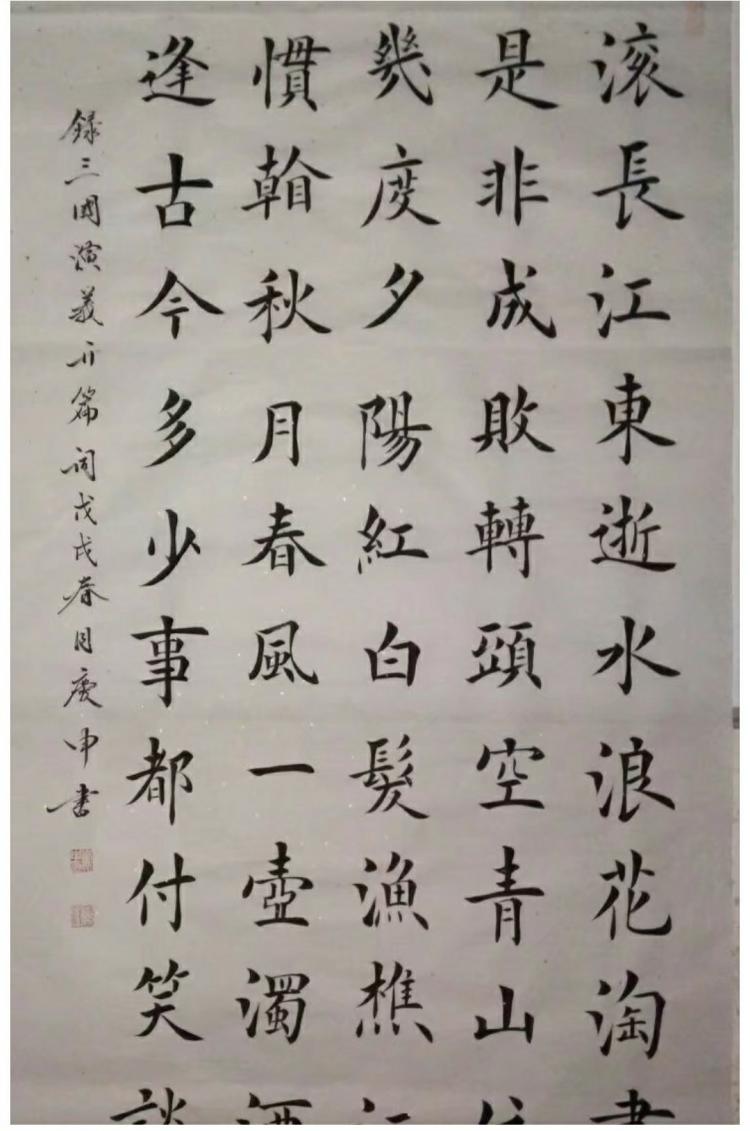 滚長江東逝水浪花淘
是非成敗轉頭空青山
幾度夕陽紅白髮漁樵
慣看秋月春風一壺濁酒
逢古今多少事都付笑談
錄三國演義开篇詞戊戌春月庚申書